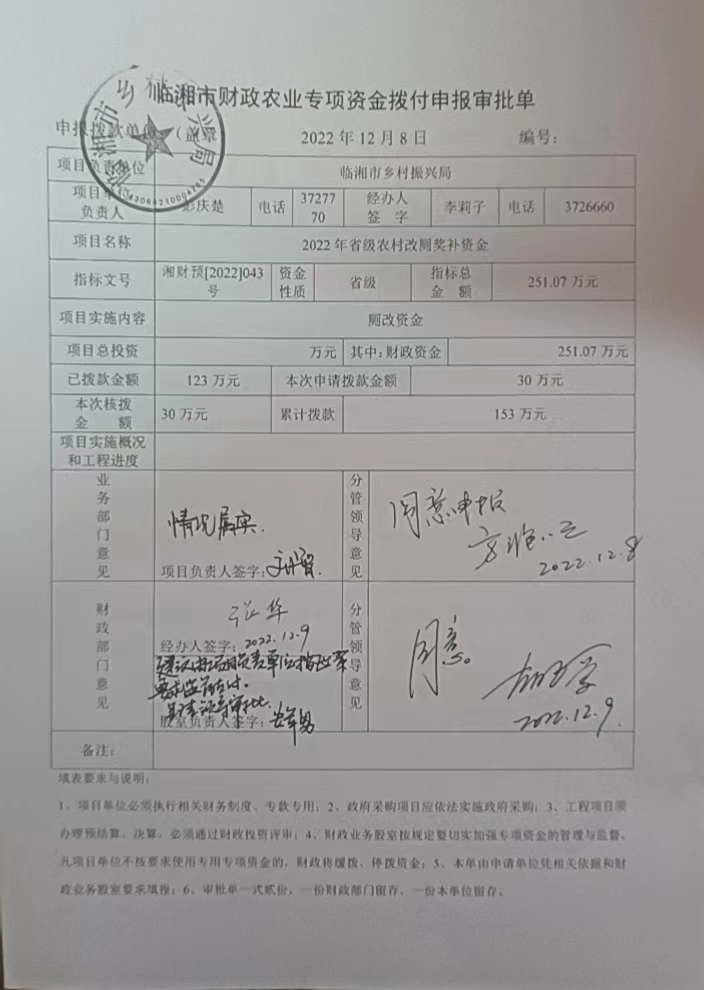 临湘市财政农业专项资金拨付申报审批单
申报拨款单位（盖章 2022年12月8日 编号：
临湘市乡村振兴局
43068210004765
项目负责单位 临湘市乡村振兴局
项目单位负责人 彭庆楚 电话 3727770 经办人签字 李莉子 电话 3726660
项目名称 2022年省级农村改厕奖补资金
指标文号 湘财预[2022]043号 资金性质 省级 指标总金额 251.07万元
项目实施内容 厕改资金
项目总投资 万元 其中:财政资金 251.07万元
已拨款金额 123万元 本次申请拨款金额 30万元
本次核拨金额 30万元 累计拨款 153万元
项目实施概况和工程进度
业务部门意见 情况属实. 项目负责人签字: 分管领导意见 同意申报
2022.12.8
财政部门意见 张华
经办人签字: 2022.12.9
分管领导意见 同意。
2022.12.9.
股室负责人签字:
备注:
填表要求与说明:
1、项目单位必须执行相关财务制度、专款专用；2、政府采购项目应依法实施政府采购；3、工程项目须
办理预结算、决算，必须通过财政投资评审；4、财政业务股室按规定要切实加强专项资金的管理与监督，
凡项目单位不按要求使用专用专项资金的，财政将缓拨、停拨资金；5、本单由申请单位凭相关依据和财
政业务股室要求填报；6、审批单一式贰份，一份财政部门留存，一份本单位留存。